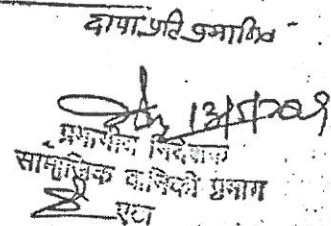 छाया प्रति प्रमाणित
13/5/2009
प्रभागीय निदेशक
सामाजिक वानिकी प्रभाग
एटा